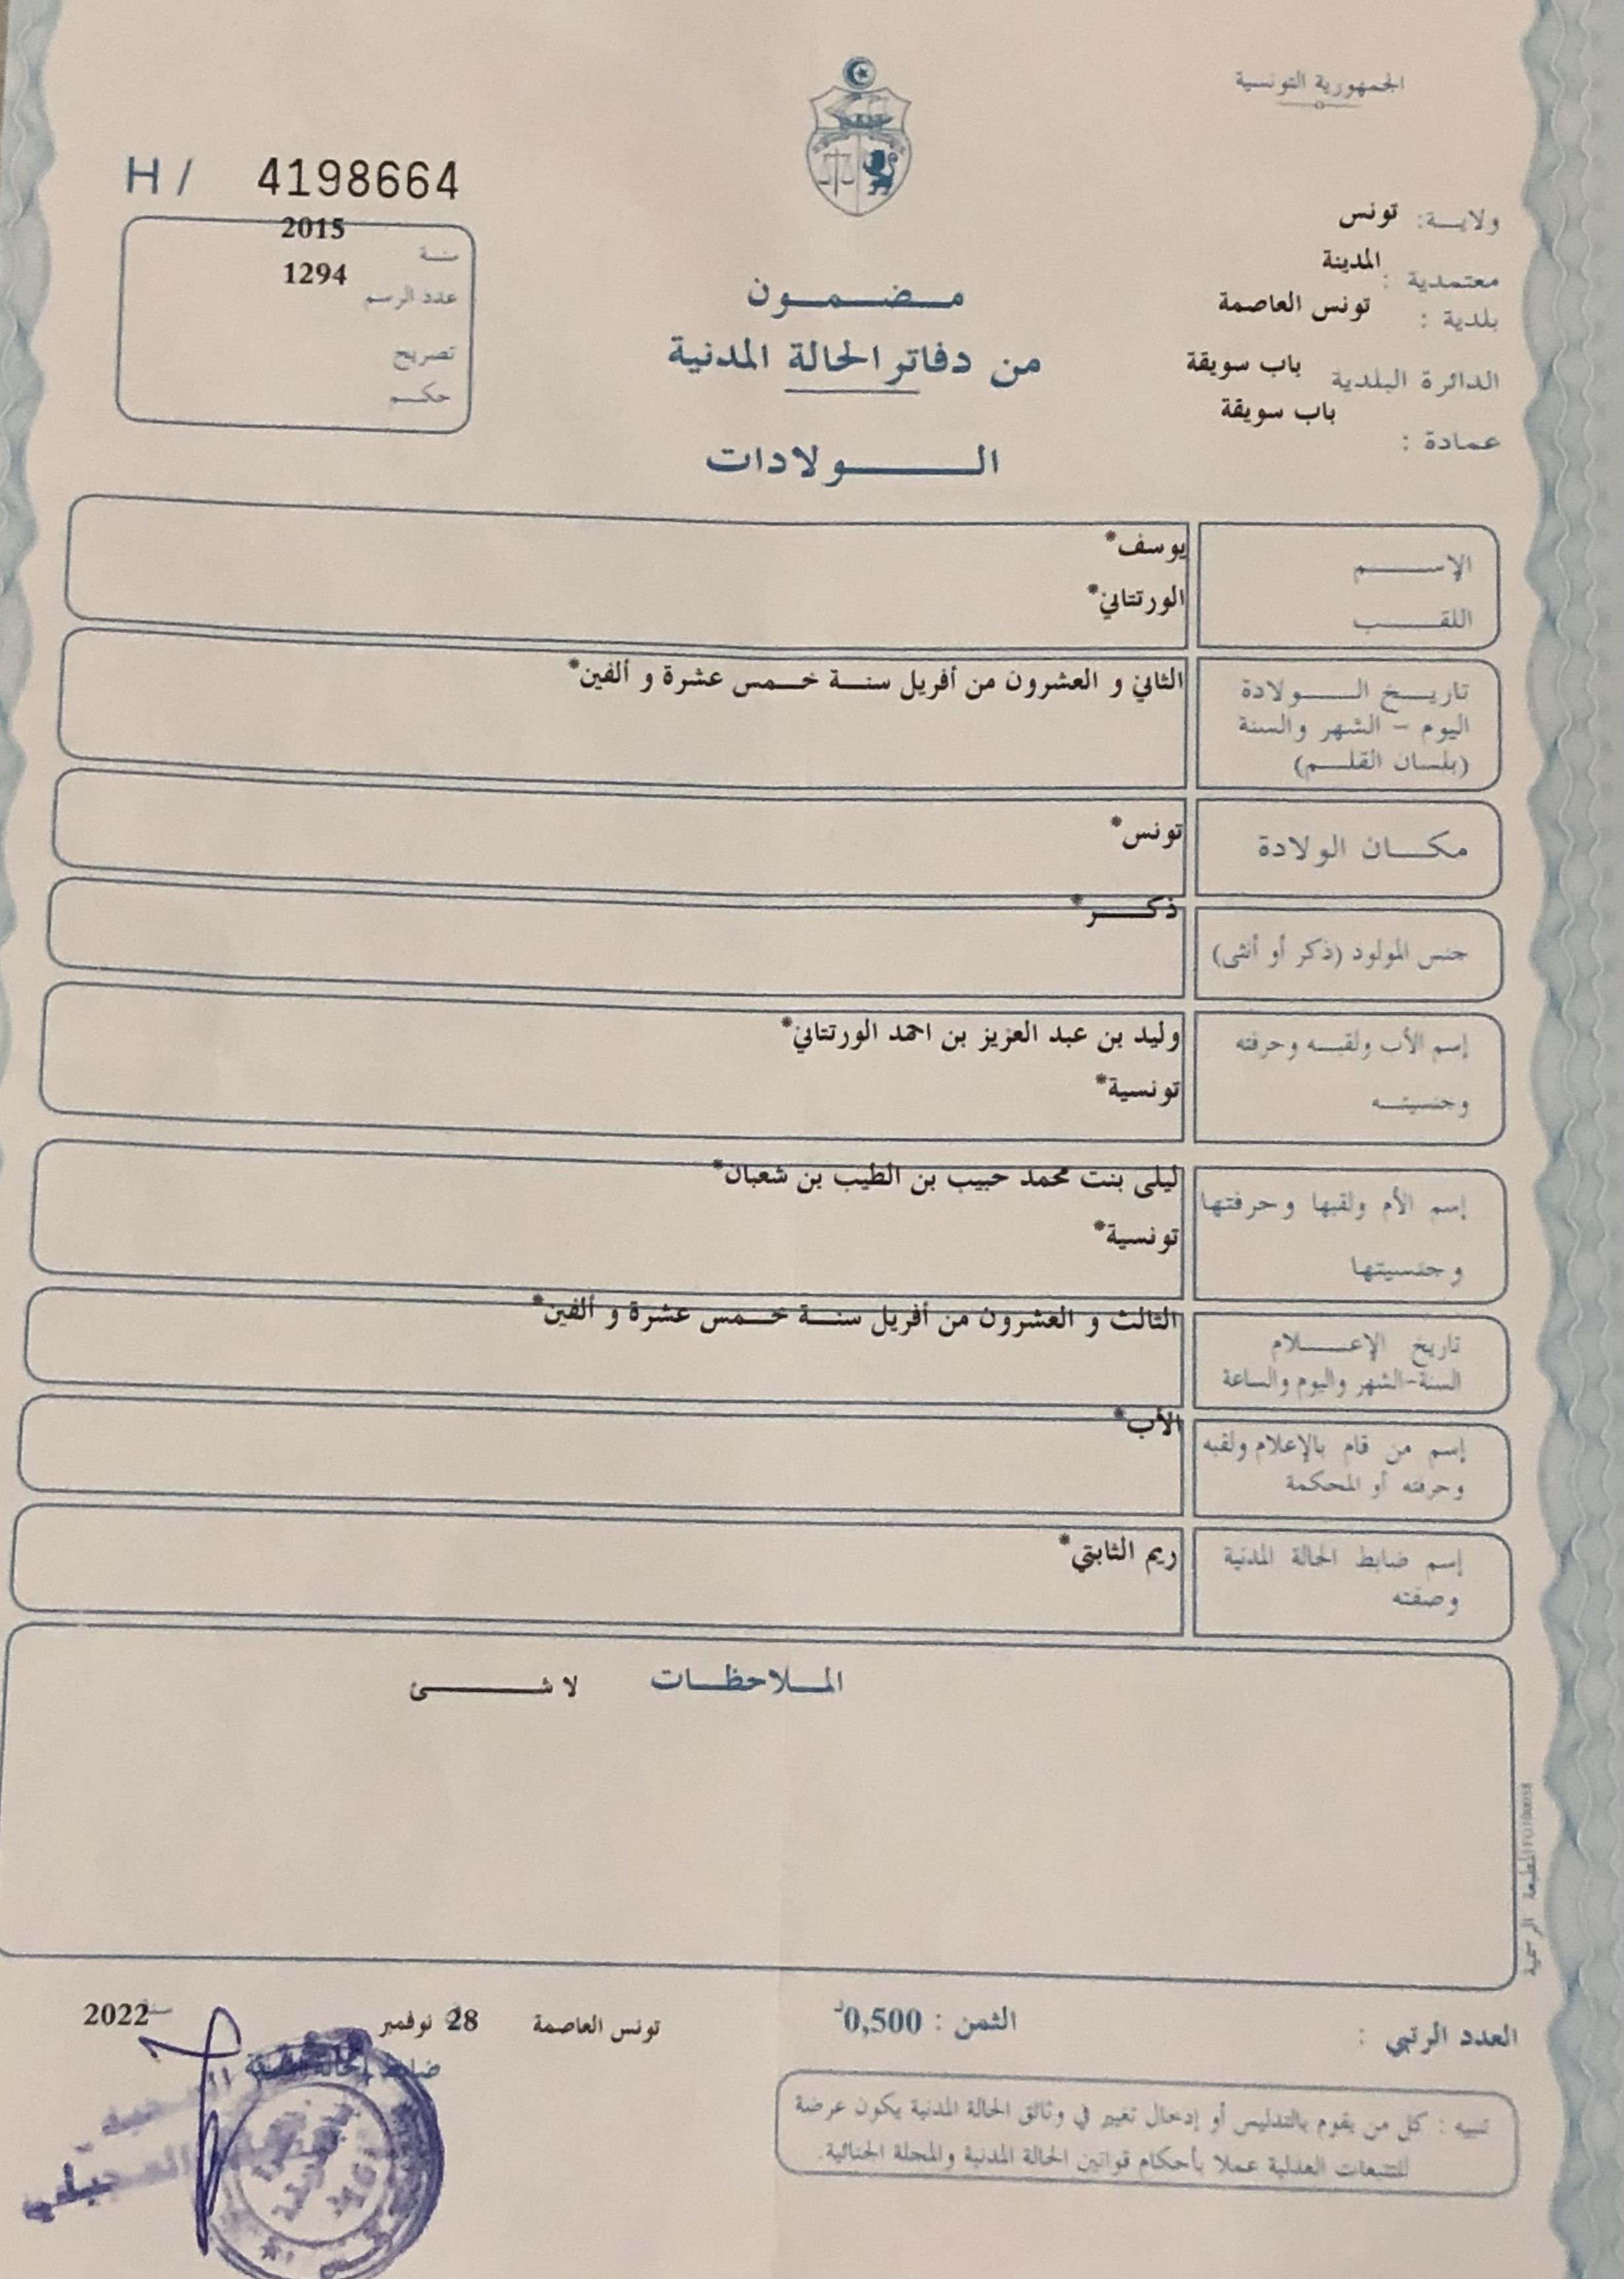 الجمهورية التونسية
ولايـــة: تونس
معتمدية : المدينة
بلدية : تونس العاصمة
الدائرة البلدية باب سويقة
عمادة : باب سويقة
H / 4198664
سنــة 2015
عدد الرسم 1294
تصريح
حكــم
مـــضـــمـــون
من دفاتر الحالة المدنية
الـــــولادات
الإســـــم يوسف*
اللقـــــب الورتتاني*
تاريـــخ الـــولادة الثاني و العشرون من أفريل سنـــة خـــمس عشرة و ألفين*
اليوم - الشهر والسنة
(بلسان القلـــم)
مكـــان الولادة تونس*
جنس المولود (ذكر أو أنثى) ذكـــر*
إسم الأب ولقبـــه وحرفته وليد بن عبد العزيز بن احمد الورتتاني*
وجنسيتـــه تونسية*
إسم الأم ولقبها وحرفتها ليلى بنت محمد حبيب بن الطيب بن شعبان*
وجنسيتها تونسية*
تاريخ الإعـــلام الثالث و العشرون من أفريل سنـــة خـــمس عشرة و ألفين*
السنة-الشهر واليوم والساعة
إسم من قام بالإعلام ولقبه الأب*
وحرفته أو المحكمة
إسم ضابط الحالة المدنية ريم الثابتي*
وصفته
المـــلاحظـــات لا شـــــئ
المطبعة الرسمية
العدد الرتبي :
الثمن : 0,500د
تونس العاصمة 28 نوفمبر سنة 2022
ضابط الحالة المدنية
تنبيه : كل من يقوم بالتدليس أو إدخال تغيير في وثائق الحالة المدنية يكون عرضة
للتتبعات العدلية عملا بأحكام قوانين الحالة المدنية والمجلة الجنائية.